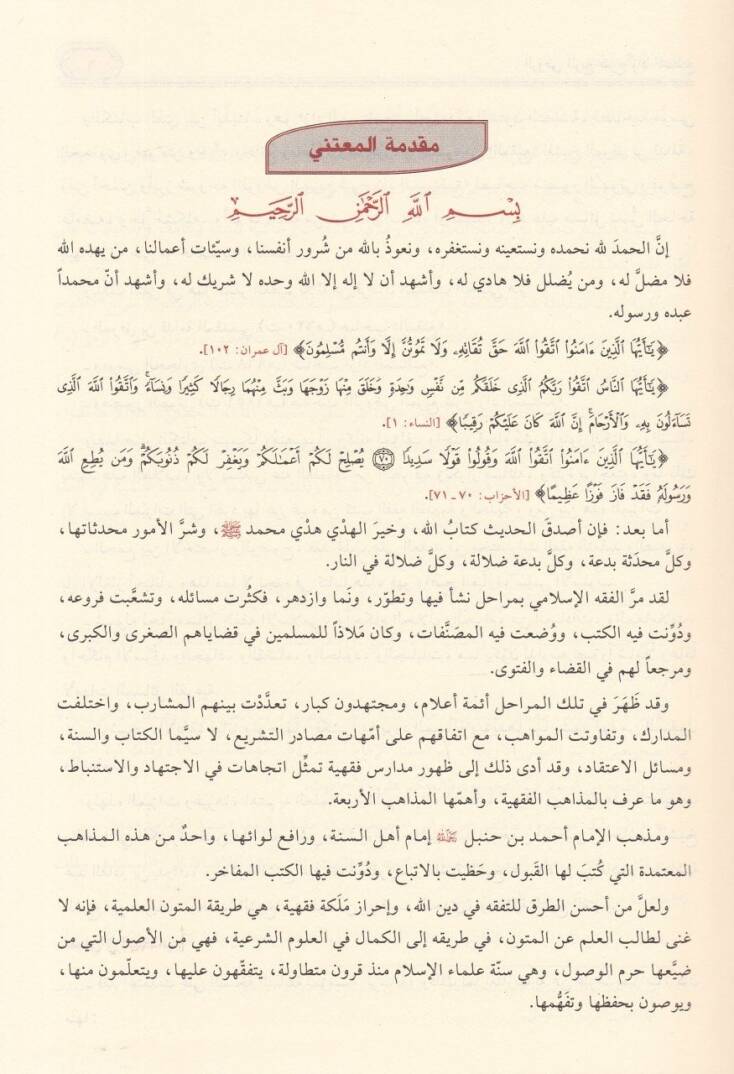 مقدمة المعتني
بِسْمِ ٱللَّهِ ٱلرَّحْمَٰنِ ٱلرَّحِيمِ
إنَّ الحمدَ لله نحمده ونستعينه ونستغفره، ونعوذُ بالله من شُرور أنفسنا، وسيّئات أعمالنا، من يهده الله
فلا مضلَّ له، ومن يُضلل فلا هادي له، وأشهد أن لا إله إلا الله وحده لا شريك له، وأشهد أنّ محمداً
عبده ورسوله.
﴿يَٰٓأَيُّهَا ٱلَّذِينَ ءَامَنُوا۟ ٱتَّقُوا۟ ٱللَّهَ حَقَّ تُقَاتِهِۦ وَلَا تَمُوتُنَّ إِلَّا وَأَنتُم مُّسْلِمُونَ﴾ [آل عمران: ١٠٢].
﴿يَٰٓأَيُّهَا ٱلنَّاسُ ٱتَّقُوا۟ رَبَّكُمُ ٱلَّذِى خَلَقَكُم مِّن نَّفْسٍ وَٰحِدَةٍ وَخَلَقَ مِنْهَا زَوْجَهَا وَبَثَّ مِنْهُمَا رِجَالًا كَثِيرًا وَنِسَآءً ۚ وَٱتَّقُوا۟ ٱللَّهَ ٱلَّذِى
تَسَآءَلُونَ بِهِۦ وَٱلْأَرْحَامَ ۚ إِنَّ ٱللَّهَ كَانَ عَلَيْكُمْ رَقِيبًا﴾ [النساء: ١].
﴿يَٰٓأَيُّهَا ٱلَّذِينَ ءَامَنُوا۟ ٱتَّقُوا۟ ٱللَّهَ وَقُولُوا۟ قَوْلًا سَدِيدًا ۝٧٠ يُصْلِحْ لَكُمْ أَعْمَٰلَكُمْ وَيَغْفِرْ لَكُمْ ذُنُوبَكُمْ ۗ وَمَن يُطِعِ ٱللَّهَ
وَرَسُولَهُۥ فَقَدْ فَازَ فَوْزًا عَظِيمًا﴾ [الأحزاب: ٧٠ ـ ٧١].
أما بعد: فإن أصدقَ الحديث كتابُ الله، وخيرَ الهدْي هدْي محمد ﷺ، وشرَّ الأمور محدثاتها،
وكلَّ محدَثة بدعة، وكلَّ بدعة ضلالة، وكلَّ ضلالة في النار.
لقد مرَّ الفقه الإسلامي بمراحل نشأ فيها وتطوّر، ونَما وازدهر، فكثُرت مسائله، وتشعَّبت فروعه،
ودُوِّنت فيه الكتب، ووُضعت فيه المصَنَّفات، وكان مَلاذاً للمسلمين في قضاياهم الصغرى والكبرى،
ومرجعاً لهم في القضاء والفتوى.
وقد ظَهَرَ في تلك المراحل أئمة أعلام، ومجتهدون كبار، تعدَّدْت بينهم المشارب، واختلفت
المدارك، وتفاوتت المواهب، مع اتفاقهم على أمّهات مصادر التشريع، لا سيَّما الكتاب والسنة،
ومسائل الاعتقاد، وقد أدى ذلك إلى ظهور مدارس فقهية تمثِّل اتجاهات في الاجتهاد والاستنباط،
وهو ما عرف بالمذاهب الفقهية، وأهمّها المذاهب الأربعة.
ومذهب الإمام أحمد بن حنبل رحمه الله إمام أهل السنة، ورافع لوائها، واحدٌ من هذه المذاهب
المعتمدة التي كُتبَ لها القَبول، وحَظيت بالاتباع، ودُوِّنت فيها الكتب المفاخر.
ولعلَّ من أحسن الطرق للتفقه في دين الله، وإحراز مَلَكة فقهية، هي طريقة المتون العلمية، فإنه لا
غنى لطالب العلم عن المتون، في طريقه إلى الكمال في العلوم الشرعية، فهي من الأصول التي من
ضيَّعها حرم الوصول، وهي سنّة علماء الإسلام منذ قرون متطاولة، يتفقّهون عليها، ويتعلّمون منها،
ويوصون بحفظها وتفَهُّمها.